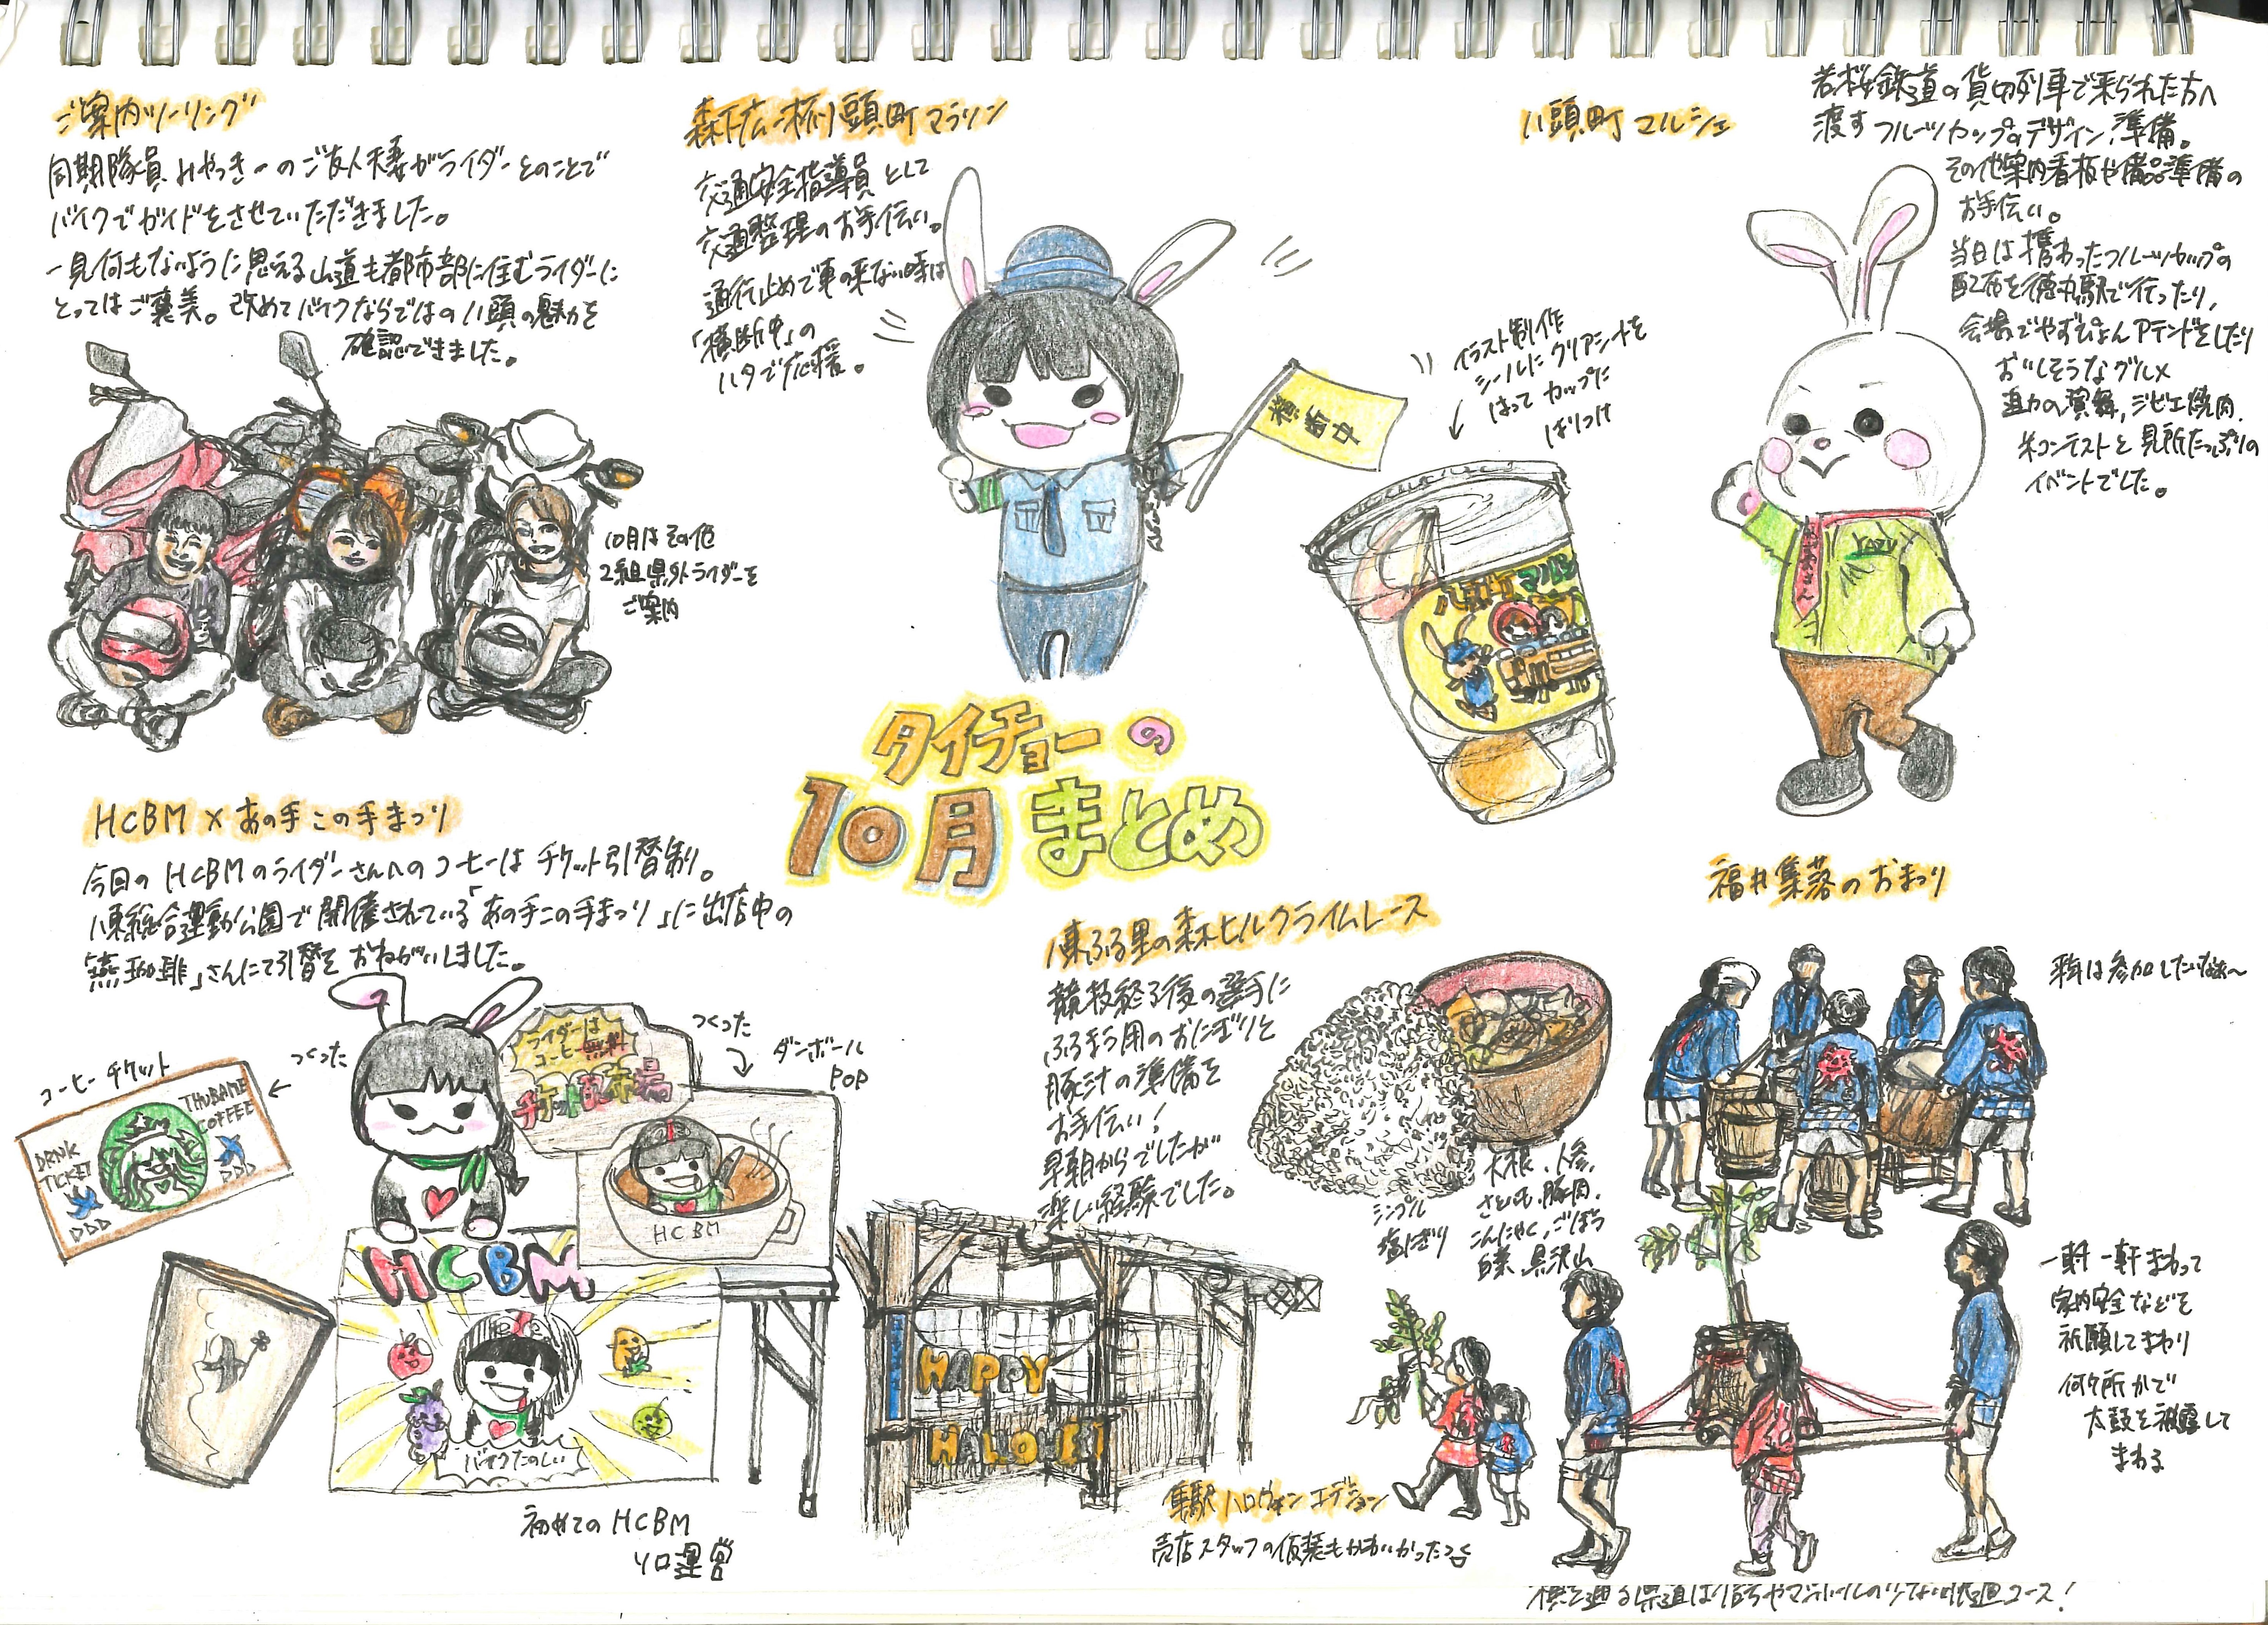 ご案内ツーリング
同期隊員みやっきーのご友人夫妻がライダーとのことで
バイクでガイドをさせていただきました。
一見何もないように思える山道も都市部に住むライダーに
とってはご褒美。改めてバイクならではの八頭の魅力を
確認できました。
10月はその他
2組県外ライダーを
ご案内
森下広一杯八頭町マラソン
交通安全指導員として
交通整理のお手伝い。
通行止めで車の来ない時は
「横断中」の
ハタで応援。
横断中
八頭町マルシェ
若桜鉄道の貸切列車で来られた方へ
渡すフルーツカップのデザイン、準備。
その他案内看板や備品準備の
お手伝い。
当日は携わったフルーツカップの
配布を徳丸駅で行ったり、
会場でやずぴょんアテンドをしたり
おいしそうなグルメ
迫力の演舞,ジビエ焼肉,
米コンテストと見所たっぷりの
イベントでした。
イラスト制作
シールにクリアシートを
はってカップに
ばりつけ
八頭町マルシェ
YAZU
タイチョーの
10月まとめ
HCBM×あの手この手まつり
今回のHCBMのライダーさんへのコーヒーはチケット引替制。
八東総合運動公園で開催されている「あの手この手まつり」に出店中の
「燕珈琲」さんにて引替をおねがいしました。
コーヒーチケット
つくった
DRINK
TICKET
THUBAME
COFFEE
ライダーは
コーヒー無料
チケット配布場
つくった
ダンボール
POP
HCBM
HCBM
バイクたのしい
初めてのHCBM
ソロ運営
八東ふる里の森ヒルクライムレース
競技終了後の選手に
ふるまう用のおにぎりと
豚汁の準備を
お手伝い!
早朝からでしたが
楽しい経験でした。
シンプル
塩にぎり
大根、人参、
さといも、豚肉、
こんにゃく、ごぼう
白菜、具沢山
HAPPY
HALLOWEEN
隼駅ハロウィンエデション
売店スタッフの仮装もかわいかった
福井集落のおまつり
来年は参加したいなぁ〜
一軒一軒まわって
家内安全などを
祈願してまわり
何ヶ所かで
太鼓を披露して
まわる